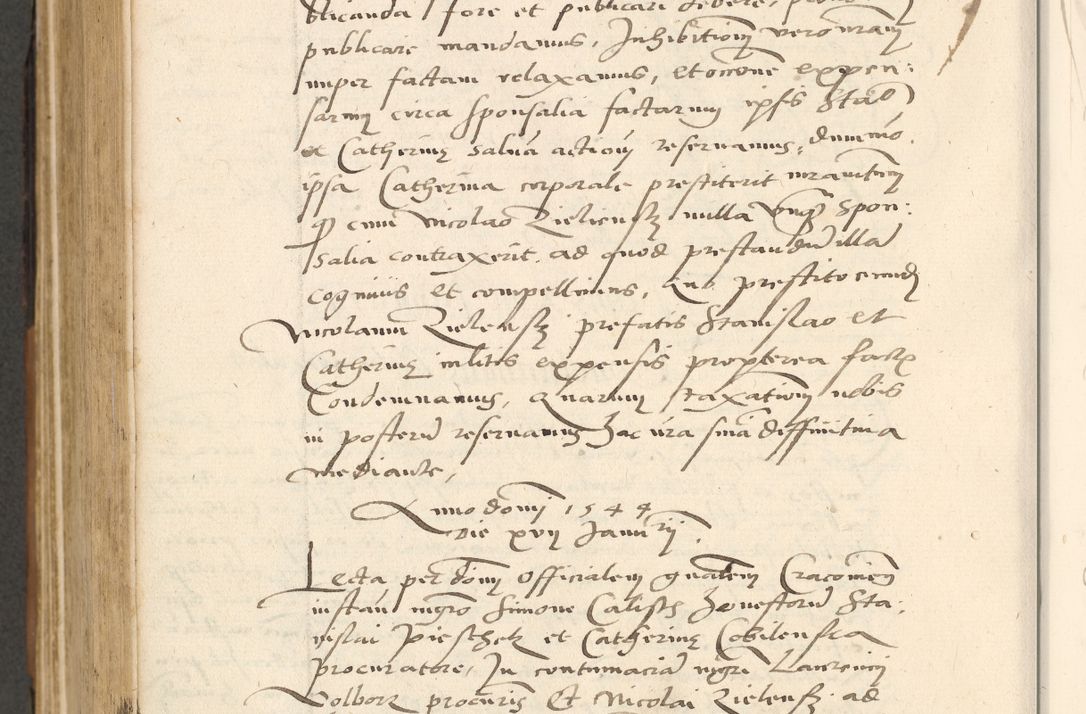 blicanda fore et publicari debere,
publicare mandamus, Inhibitionem vero nram
nuper factam relaxamus, Et expen:
sarum circa sponsalia factarum ipsis Stao
et Catherinę salva actionem reservamus, dummodo
ipsa Catherina corporale prestiterit iuramentum
cum Nicolao Zielensky nulla unquam spon:
salia contraxerit, ad quod prestandum illam
cogimus et compellimus, Quo prestito eundem
Nicolaum Zielensky prefatis Stanislao et
Catherinę in litis expensis propterea factis
Condemnamus, Quarum taxationem nobis
in posterum reservamus hac nra snia diffinitiva
mediante,
Anno domi 1544
Die xvij Januarij,
Lecta per dom Officialem gnalem Cracovien
instan mgro Simone Calisch honestorum Sta,
nislai Pieschek et Catherinę Cobilenska
procuratore, In contumaciam mgri Laurencij
Volborz procuris Et Nicolai Zielensky ad